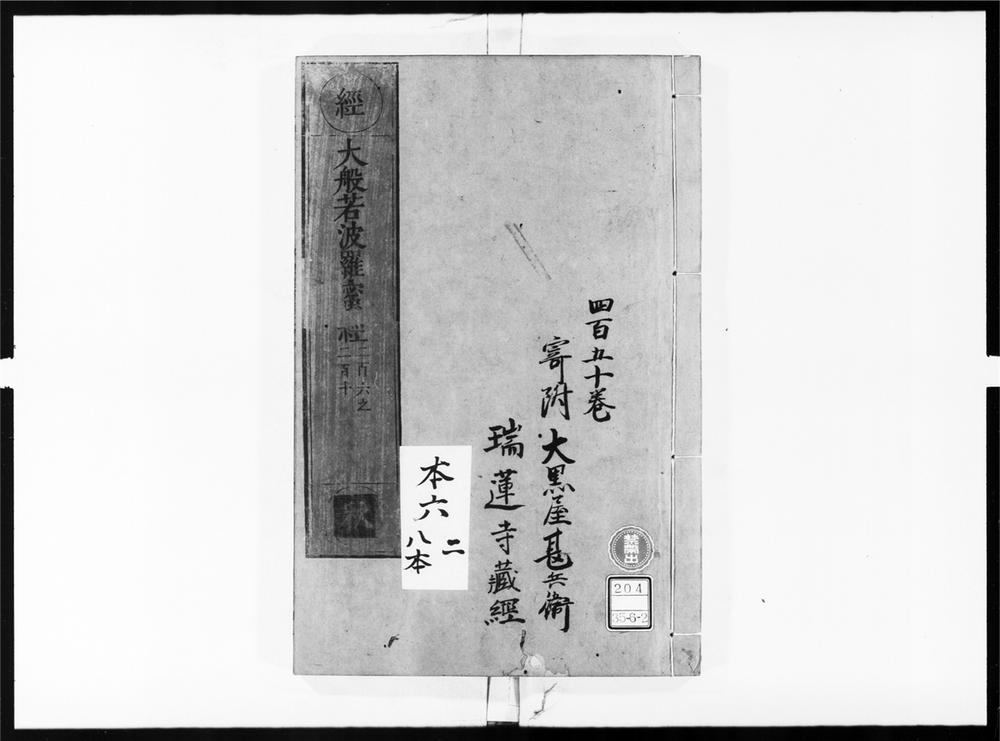 四百五十卷
寄附 大黒屋甚兵衛
瑞蓮寺藏經
經
大般若波羅蜜經
二百六之
二百十
秋
本六
二
八本
禁帶出
204
35-6-2